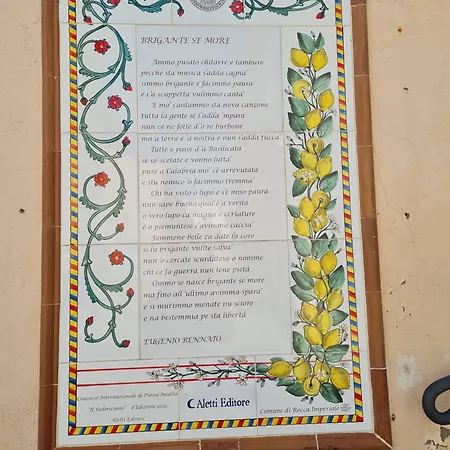 BRIGANTE SE MORE
Ammo pusato chitarre e tambure
pecche sta musica s'adda cagna'
simmo brigante e facimmo paura
e c'a scuppetta vulimmo canta'
E mo' cantammo sta nova canzone
tutta la gente se l'adda 'mpara'
nun ce ne fotte d'o re burbone
ma a terra è 'a nostra e nun s'adda tucca'
Tutte e paise d'a Basilicata
se so' scetate e vonno lutta'
pure a Calabria mo' s'è arrevutata
e stu nemico 'o facimmo tremma'
Chi ha visto o lupo e s'è miso paura
nun sape buono qual' è a verita
o vero lupo ca magna e criature
è o piemuntese c'avimma caccia'
Femmene belle ca date lu core
si lu brigante vulite salva'
nun 'o cercate scurdateve o nomme
chi ce fa guerra nun tene pietà
Ommo se nasce brigante se more
ma fino all'ultimo avimma spara'
e si murimmo menate nu sciore
e na bestemmia pe sta libertà
EUGENIO BENNATO
Concorso Internazionale di Poesia Inedita
"Il Federiciano" 4ª Edizione 2012
Aletti Editore
Aletti Editore
Comune di Rocca Imperiale